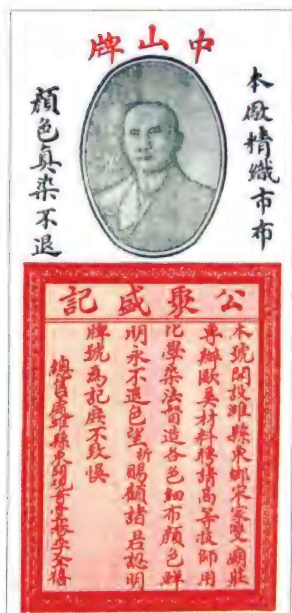 中山牌
本厰精織市布
顏色真染不退
公聚盛記
本號開設濰縣東鄉宋家雙廟莊
專辦歐美材料聘請高等技師用
化學染法督造各色細布顏色鮮
明永不退色望祈賜顧諸君認明
牌號為記庶不致悞
總售處濰縣東關